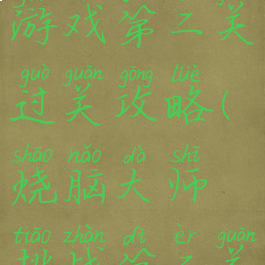 游戏第二关
guò guān gōng lüè
过关攻略(
shāo nǎo dà shī
烧脑大师
tiǎo zhàn dì èr guān
挑战第二关